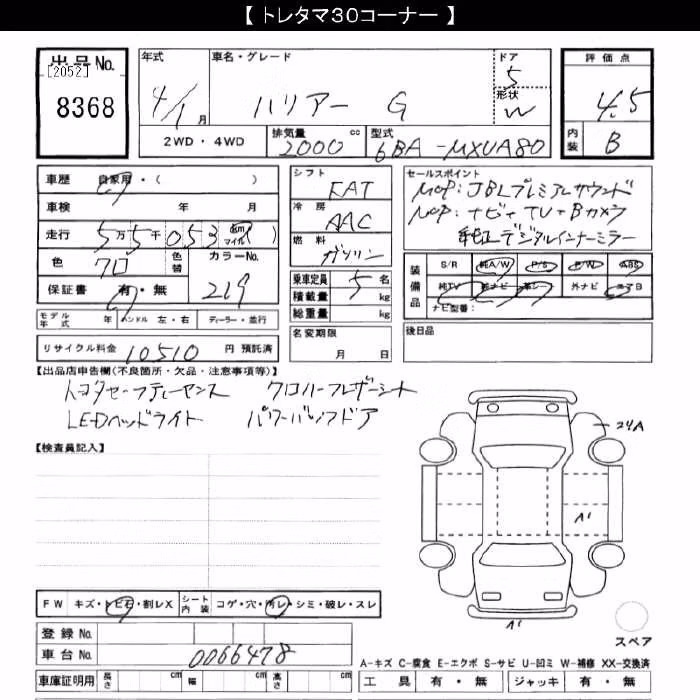 【 トレタマ30コーナー 】
出品No.
[2052]
8368
年式
4/1 月
車名・グレード
ハリアー G
ドア
5
形状
W
評価点
4.5
内装
B
2WD・4WD
排気量
2000 cc
型式
6BA-MXUA80
車歴 自家用・( )
車検 年 月
走行 5万5千053 km マイル ( )
色 クロ
色替
カラーNo.
219
保証書 有・無
モデル年式 年
ハンドル 左・右
ディーラー・並行
リサイクル料金 10510 円 預託済
シフト
FAT
冷房
AAC
燃料
ガソリン
乗車定員 5 名
積載量 kg
総重量 kg
名変期限
月 日
セールスポイント
MOP:JBLプレミアムサウンド
MOP:ナビ+TV+Bカメラ
純正デジタルインナーミラー
装備品
S/R 純A/W P/S P/W ABS
純TV 純ナビ 革シート 外ナビ エアB
ナビ型番:
後日品
【出品店申告欄(不良箇所・欠品・注意事項等)】
トヨタセーフティーセンス クロハーフレザーシート
LEDヘッドライト パワーバックドア
【検査員記入】
24A
A1
A1
スペア
FW キズ・トビ石・割レX
シート内装 コゲ・穴・汚レ・シミ・破レ・スレ
登録No.
車台No. 0066478
車庫証明用 長さ cm 幅 cm 高さ cm
A-キズ C-腐食 E-エクボ S-サビ U-凹ミ W-補修 XX-交換済
工具 有・無 ジャッキ 有・無